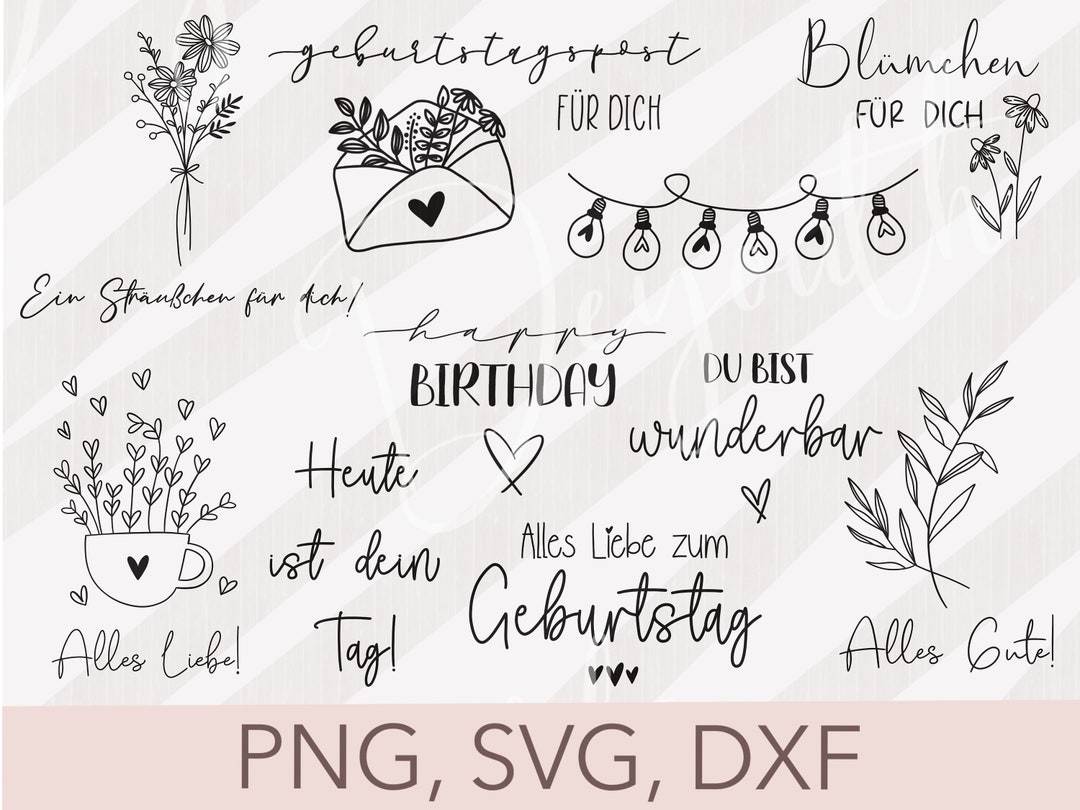 geburtstagspost
FÜR DICH
Blümchen
FÜR DICH
Ein Sträußchen für dich!
happy
BIRTHDAY
DU BIST
wunderbar
Heute
ist dein
Tag!
Alles Liebe zum
Geburtstag
Alles Liebe!
Alles Gute!
PNG, SVG, DXF